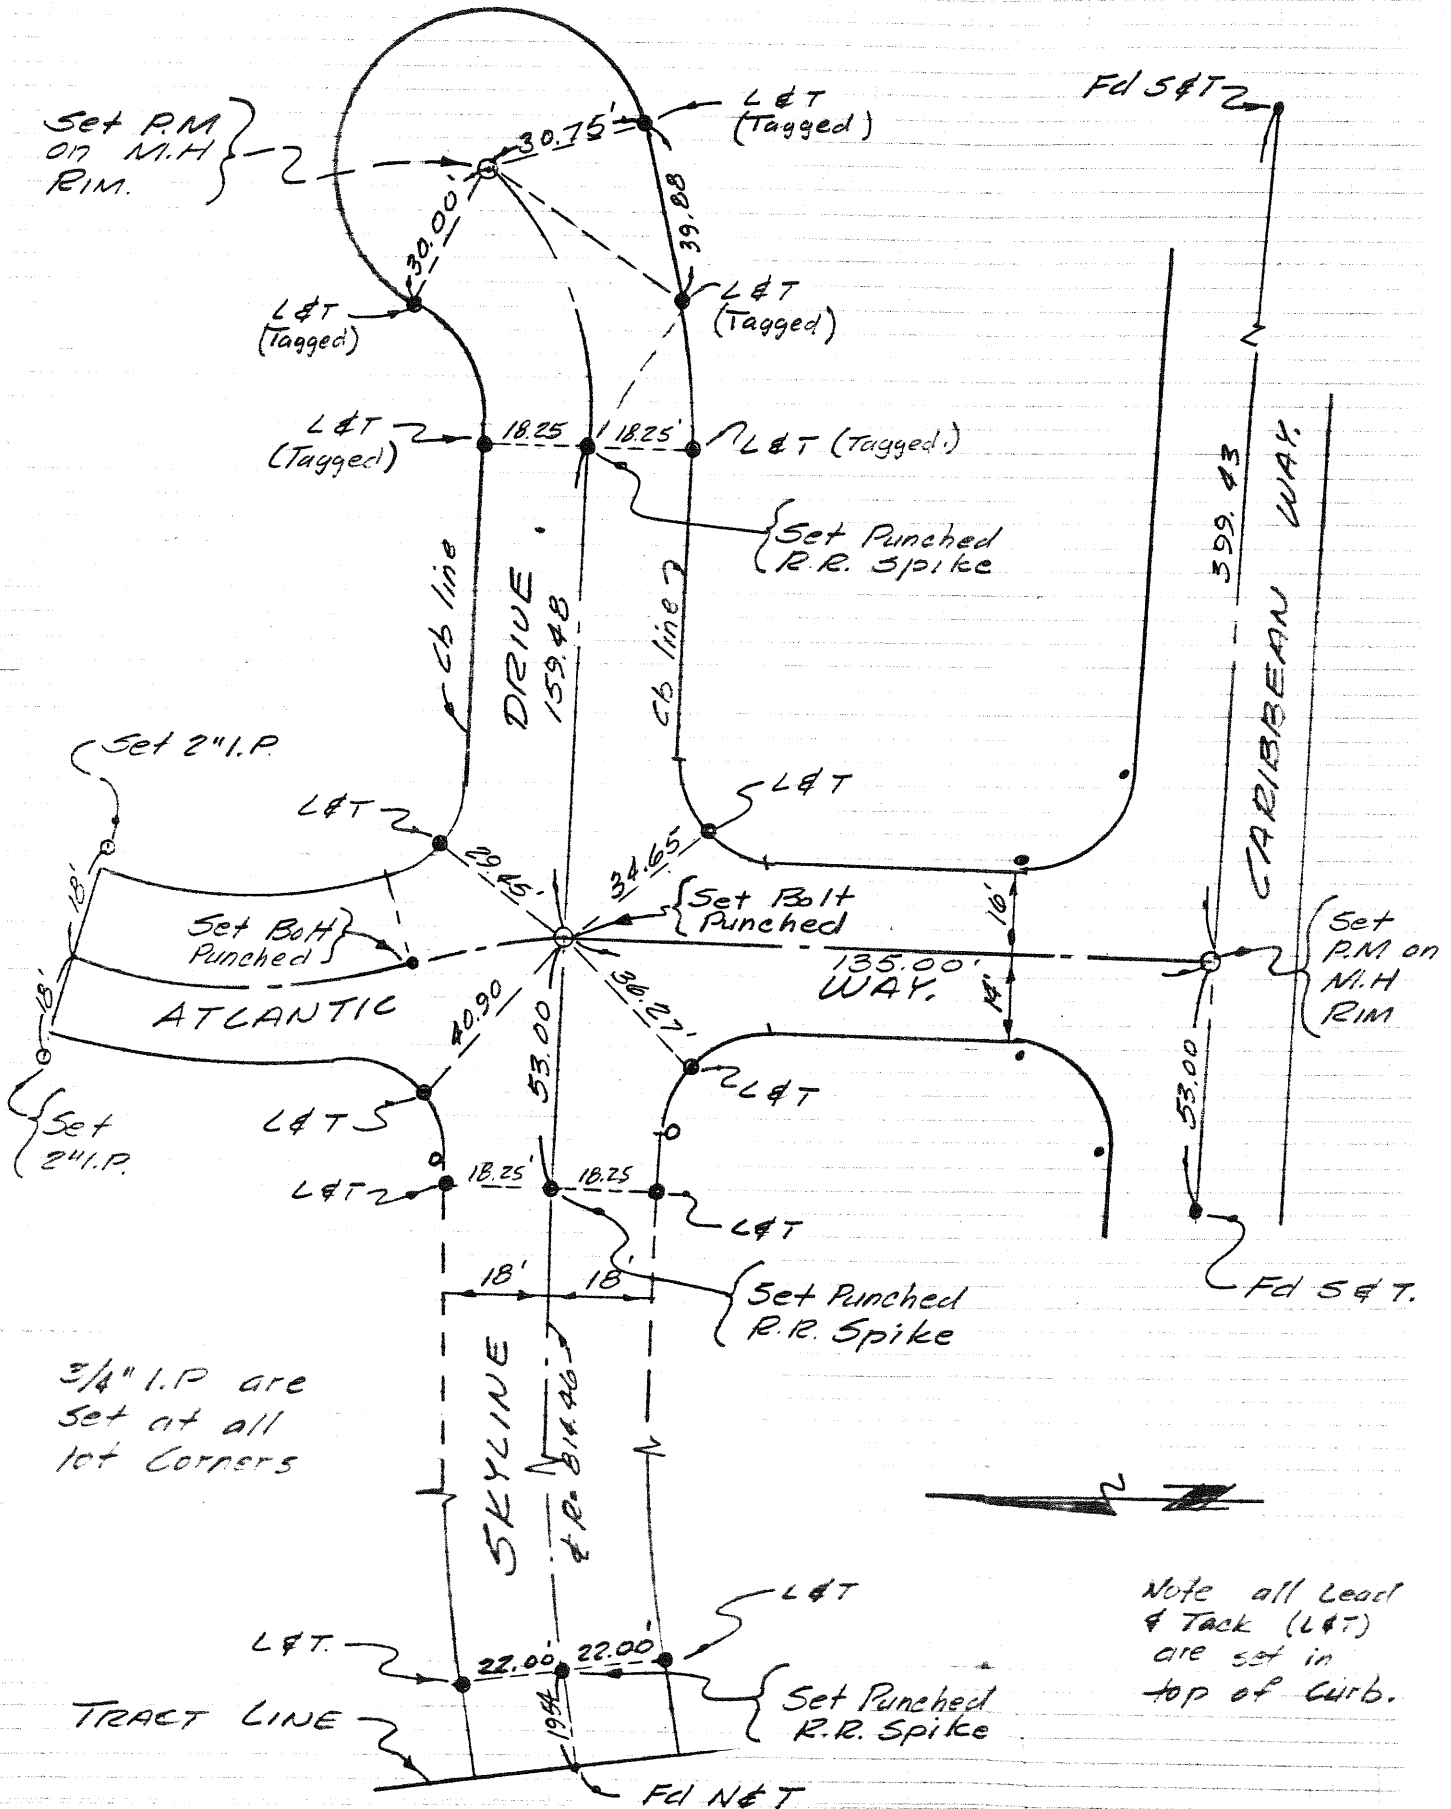 Set P.M
on M.H
RIM.
30.75'
L & T
(Tagged)
Fd S & T
30.00'
39.88
L & T
(Tagged)
L & T
(Tagged)
L & T
(Tagged)
18.25
18.25'
L & T (Tagged.)
Set Punched
R.R. Spike
Cb line
DRIVE.
159.48
Cb line
399.43
CARIBBEAN WAY.
Set 2" I.P.
L & T
L & T
29.45'
34.65'
18'
18'
Set Bolt
Punched
Set Bolt
Punched
16'
135.00'
WAY.
14'
Set
P.M on
M.H
RIM
ATLANTIC
40.90
53.00
36.27'
53.00
Set
2" I.P.
L & T
L & T
L & T
18.25'
18.25
L & T
18'
18'
Fd S & T.
Set Punched
R.R. Spike
SKYLINE
R= 814.46
3/4" I.P are
set at all
lot Corners
L & T.
22.00'
22.00'
L & T
Set Punched
R.R. Spike
Note all Lead
& Tack (L&T)
are set in
top of Curb.
TRACT LINE
Fd N & T